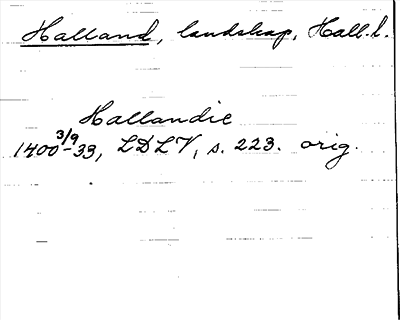 Halland, landskap, Hall. l.
Hallandie
1400 3/9 -33, LDLV, s. 223. orig.